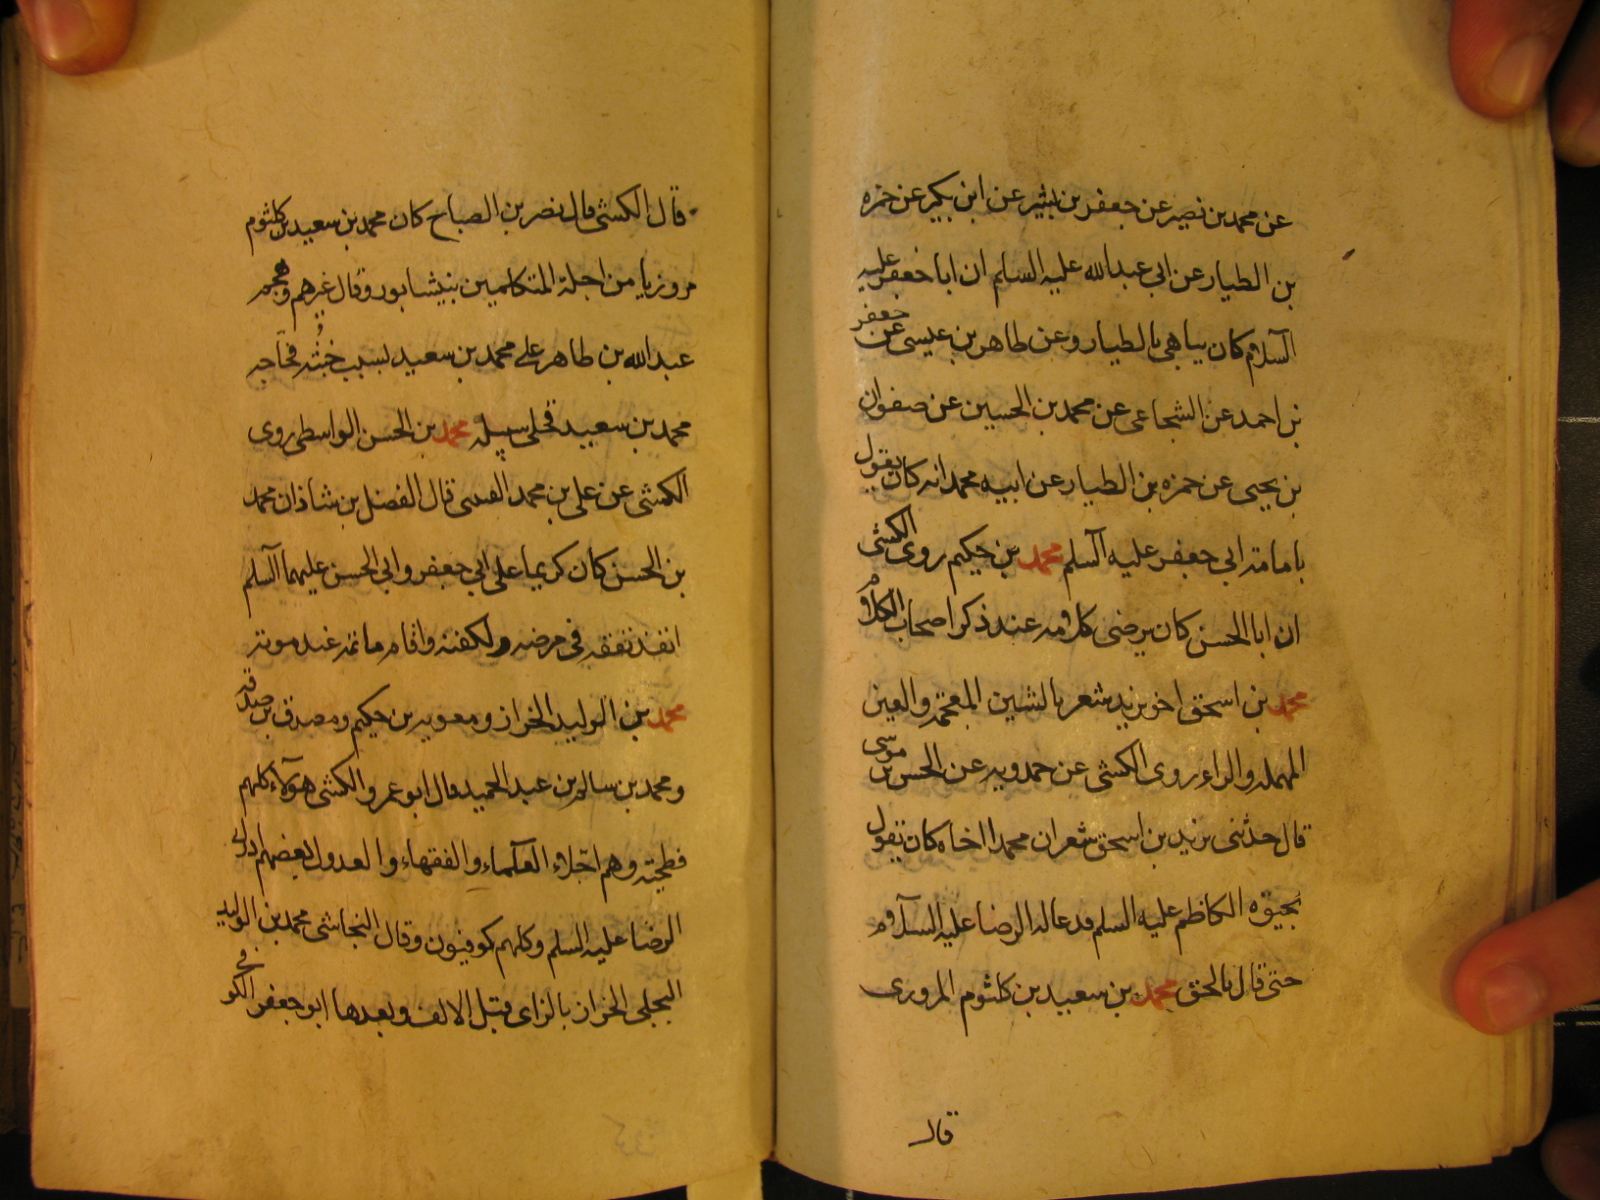 عن محمد بن نصير عن جعفر بن بشير عن ابن بكير عن حمزه
بن الطيار عن ابي عبدالله عليه السلم ان ابا جعفر عليه
السلام كان يباهي بالطيار وعن طاهر بن عيسى عن جعفر
بن احمد عن الشجاعي عن محمد بن الحسين عن صفوان
بن يحيى عن حمزه بن الطيار عن ابيه محمد انه كان يقول
بامامة ابي جعفر عليه السلم محمد بن حكيم روى الكشى
ان ابا الحسن كان يرضى كلامه عند ذكر اصحاب الكلام
محمد بن اسحق اخو يزيد شعر بالشين المعجمه والعين
المهمله والراء روى الكشى عن حمدويه عن الحسن بن موسى
قال حدثنى يزيد بن اسحق شعر ان محمدا اخاه كان يقول
بحيوة الكاظم عليه السلم فدعا له الرضا عليه السلام
حتى قال بالحق محمد بن سعيد بن كلثوم المروزى
قال
قال الكشى قال نصر بن الصباح كان محمد بن سعيد بن كلثوم
مروزيا من اجلة المتكلمين بنيشابور وقال غيرهم وهجم
عبدالله بن طاهر على محمد بن سعيد بسبب خبثه فحاجه
محمد بن سعيد فخلى سبيله محمد بن الحسن الواسطى روى
الكشى عن على بن محمد القتيبى قال الفضل بن شاذان محمد
بن الحسن كان كريما على ابي جعفر وابي الحسن عليهما السلم
انفذ نفقه فى مرضه ولكفنه واقام ماتمه عند موته
محمد بن الوليد الخزاز ومعويه بن حكيم ومصدق بن صدقه
ومحمد بن سالم بن عبد الحميد قال ابو عمرو الكشى هؤلاء كلهم
فطحية وهم اجلاء العلماء والفقهاء والعدول بعضهم ادرك
الرضا عليه السلم وكلهم كوفيون وقال النجاشى محمد بن الوليد
البجلى الخزاز بالزاى قبل الالف وبعدها ابو جعفر الكوفى